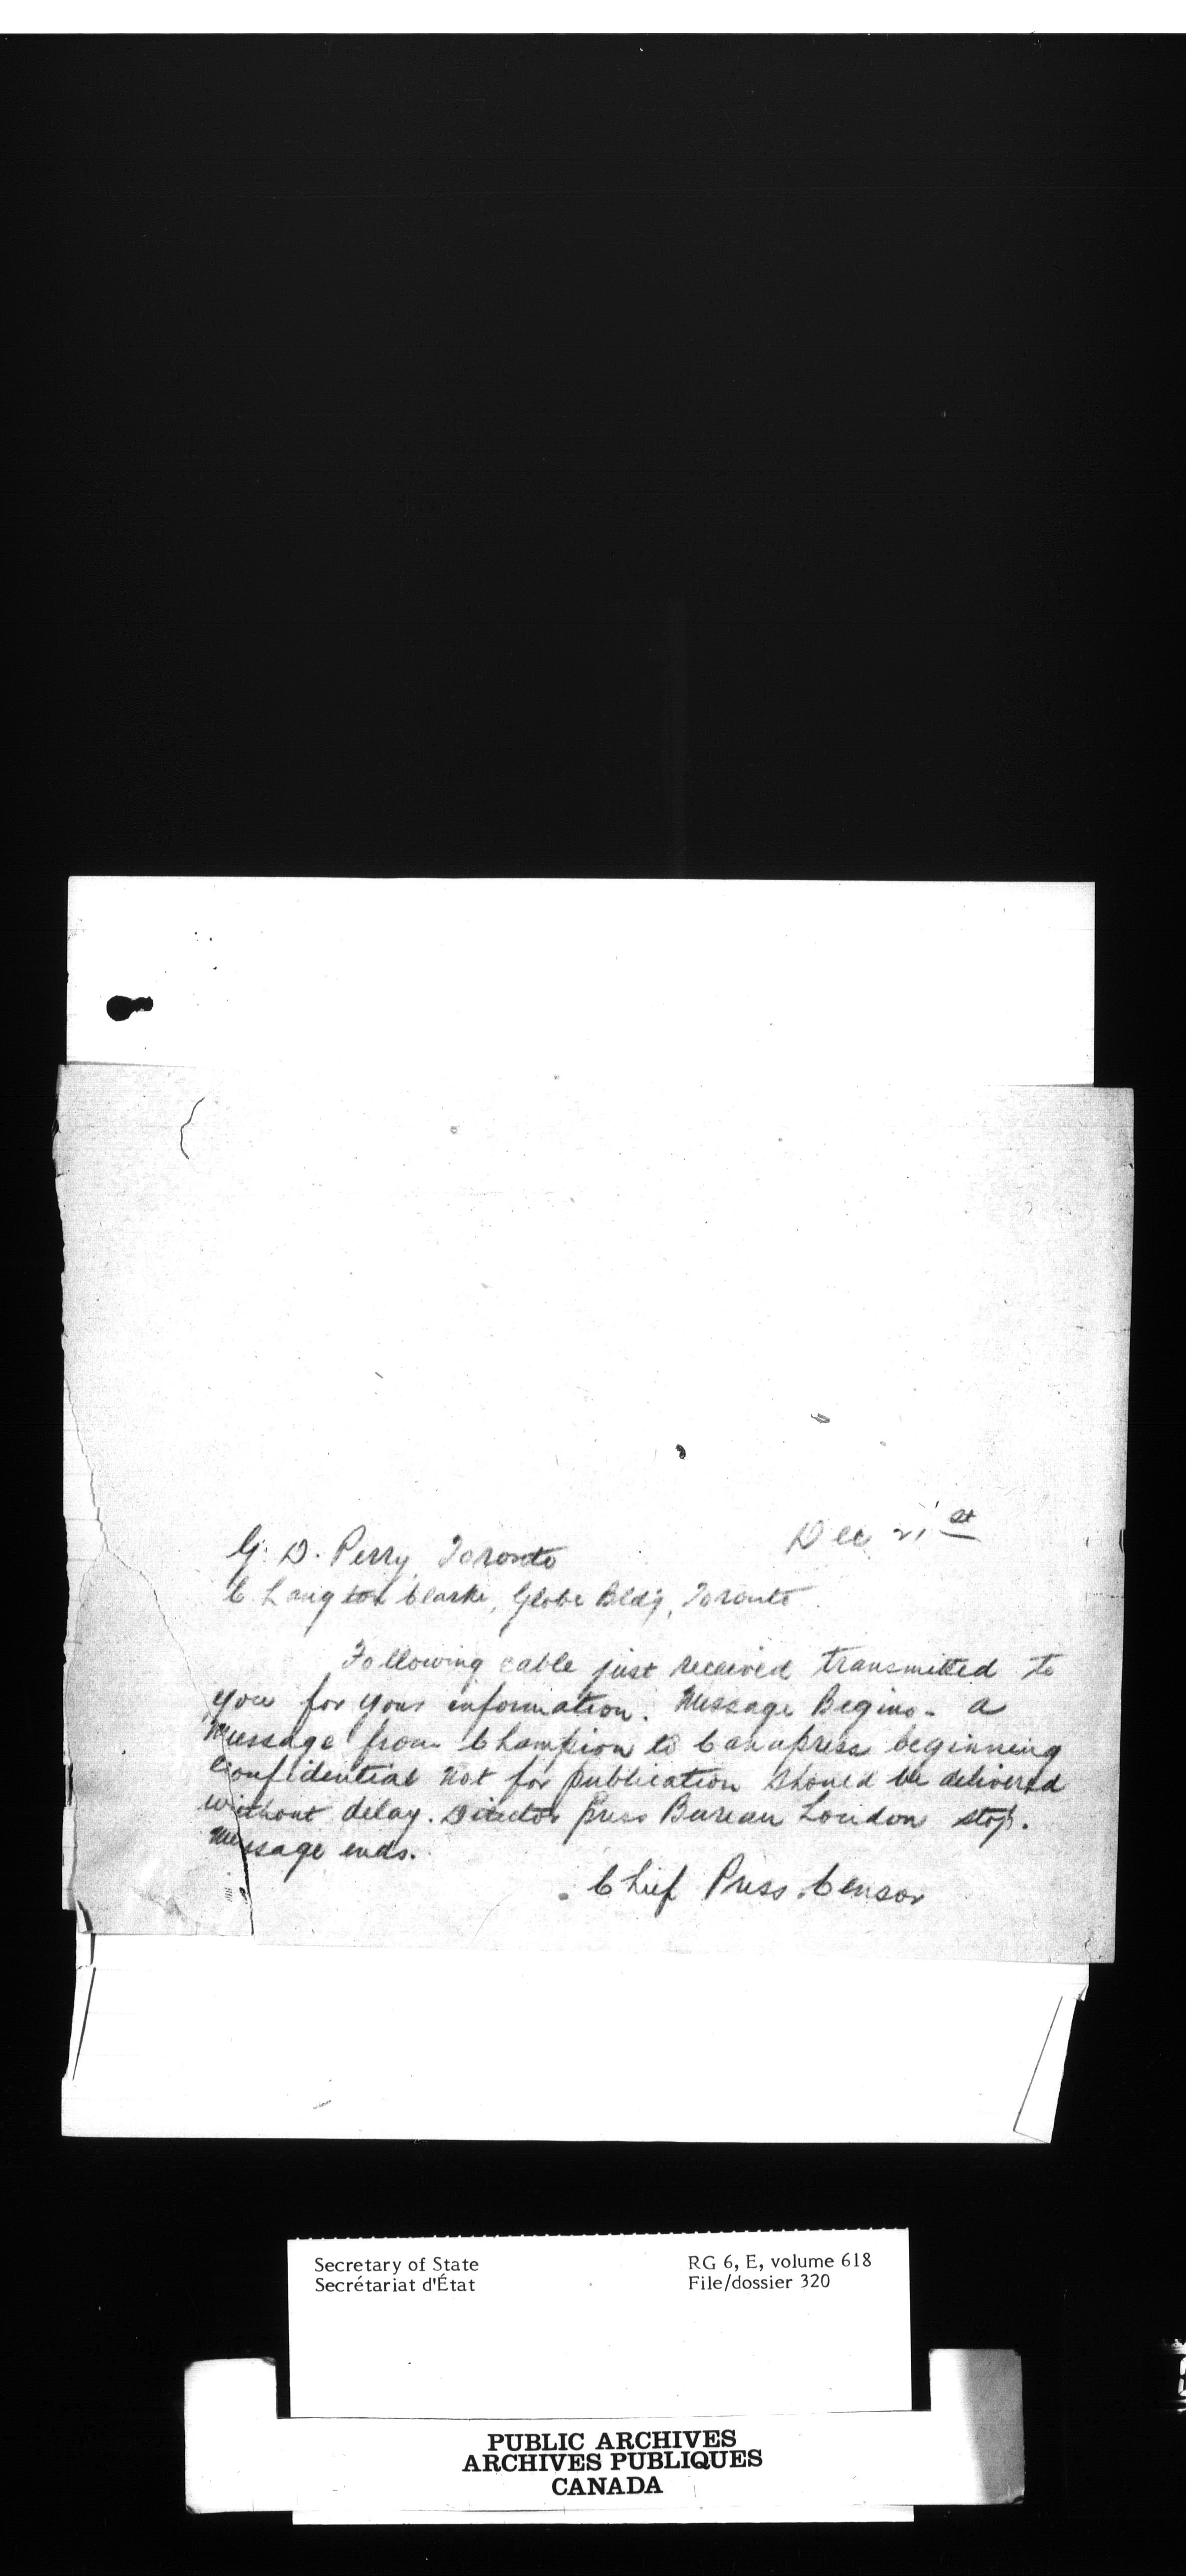 Dec 21st
G. D. Perry Toronto
C. Langton Clarke, Globe Bldg, Toronto.
Following cable just received transmitted to
you for your information. Message Begins - a
Message from Champion to Canapress beginning
Confidential not for publication should be delivered
without delay. Director press Bureau London stop.
Message ends.
Chief Press Censor
Secretary of State
Secrétariat d'État
RG 6, E, volume 618
File/dossier 320
PUBLIC ARCHIVES
ARCHIVES PUBLIQUES
CANADA